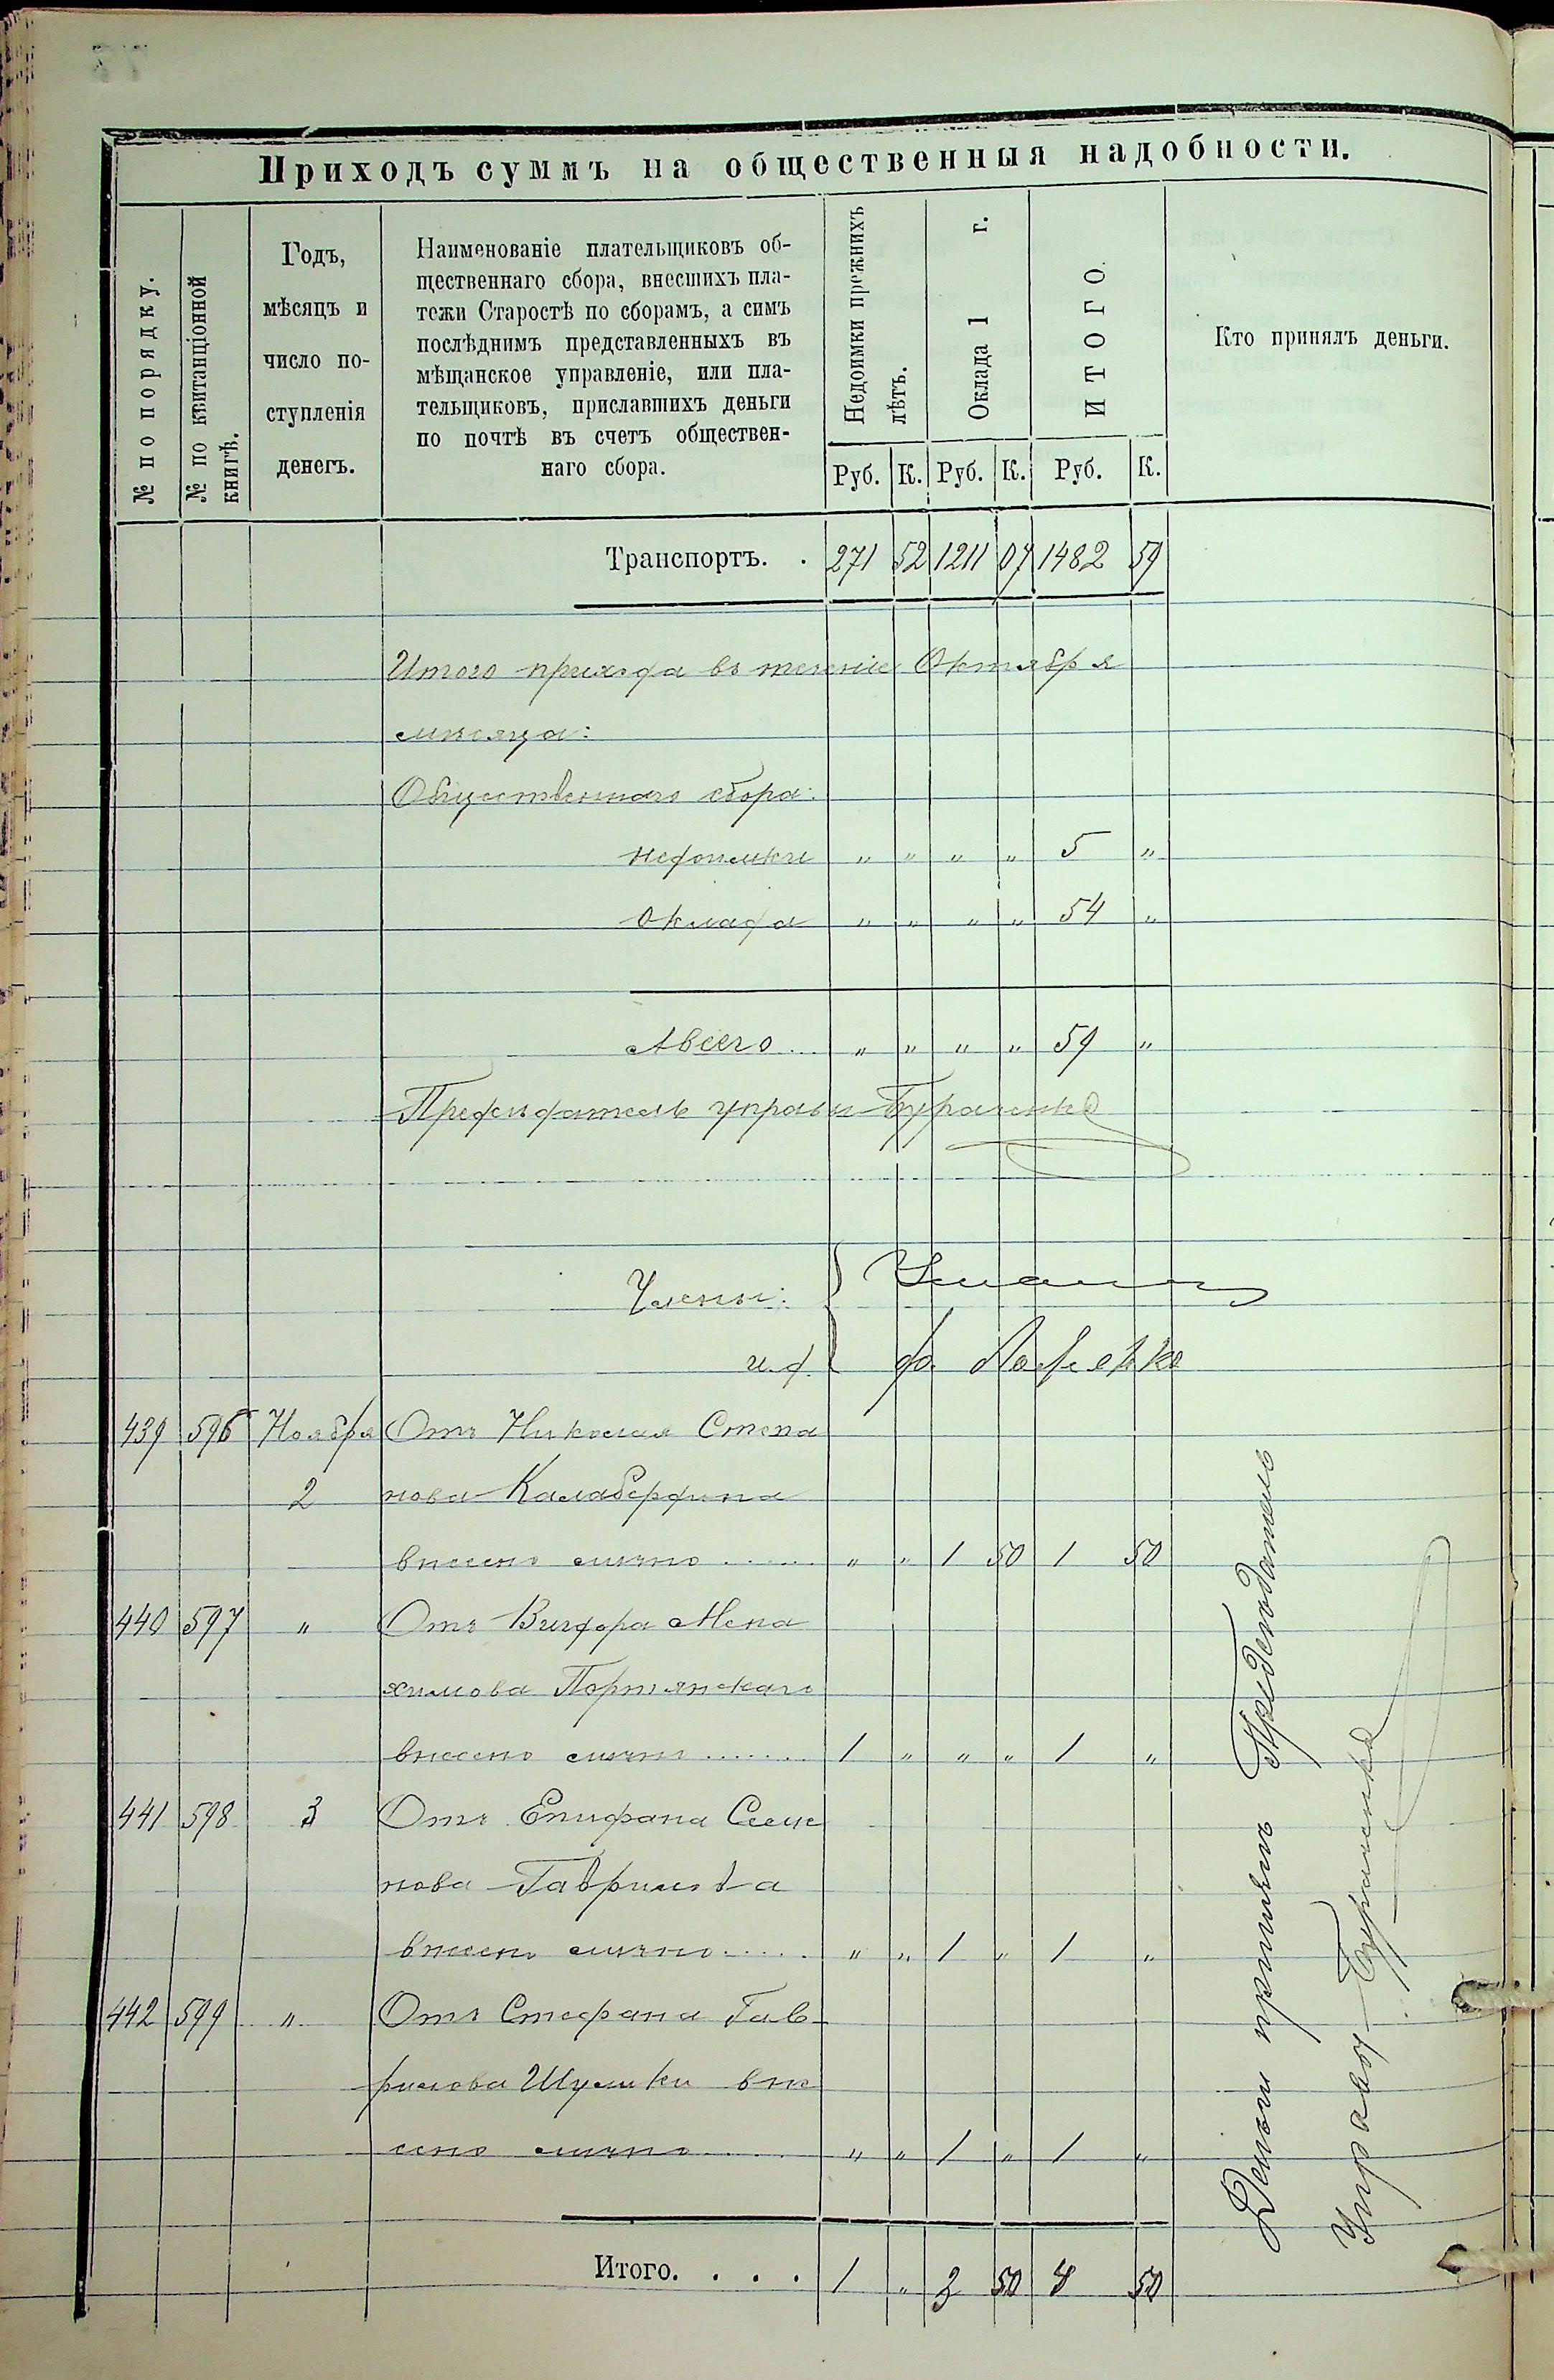 Приходъ суммъ на общественныя надобности.
№ по порядку.
№ по квитанціонной книгѣ.
Годъ,
мѣсяцъ и
число по-
ступленія
денегъ.
Наименованіе плательщиковъ об-
щественнаго сбора, внесшихъ пла-
тежи Старостѣ по сборамъ, а симъ
послѣднимъ представленныхъ въ
мѣщанское управленіе, или пла-
тельщиковъ, приславшихъ деньги
по почтѣ въ счетъ обществен-
наго сбора.
Недоимки прежнихъ лѣтъ.
Оклада 1 г.
ИТОГО.
Кто принялъ деньги.
Руб. К. Руб. К. Руб. К.
Транспортъ. . 271 52 1211 07 1482 59
Итого прихода въ теченіе Октября
мѣсяца:
Общественнаго сбора:
недоимки " " " " 5 "
оклада " " " " 54 "
А всего " " " " 59 "
Предсѣдатель управы Бураченко
Члены:
и. д.
439 596 Ноября Отъ Николая Степа
2 нова Калабердина
внесено лично ..... " " 1 50 1 50
440 597 " Отъ Вигдора Мена
химова Портянскаго
внесено лично ...... 1 " " " 1 "
441 598 3 Отъ Епифана Семе
нова Гаврилова
внесено лично ..... " " 1 " 1 "
442 599 " Отъ Стефана Гав-
рилова Шулики вне
сено лично ..... " " 1 " 1 "
Итого. . . . 1 " 3 50 4 50
Деньги принялъ Предсѣдатель
Управы Бураченко